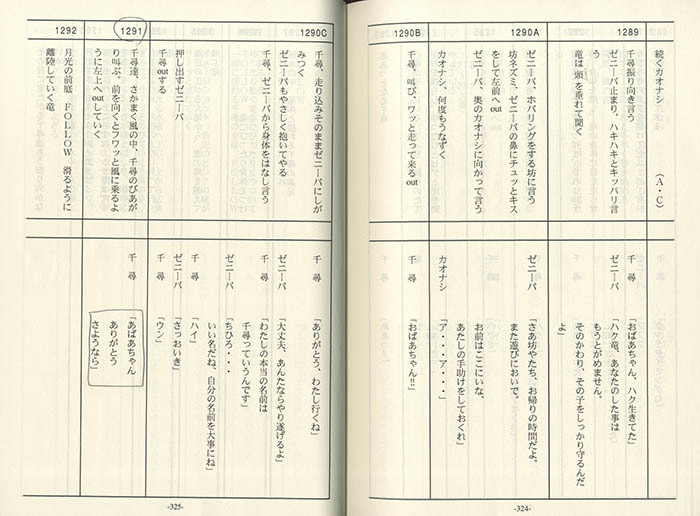 続くカオナシ　　　(A・C)
1289
千尋振り向き言う
ゼニーバ止まり、ハキハキとキッパリ言
う
竜は頭を垂れて聞く
千　尋　「おばあちゃん、ハク生きてた」
ゼニーバ　「ハク竜、あなたのした事は
もうとがめません。
そのかわり、その子をしっかり守るんだ
よ」
1290A
ゼニーバ、ホバリングをする坊に言う
坊ネズミ、ゼニーバの鼻にチュッとキス
をして左前へout
ゼニーバ、奥のカオナシに向かって言う
カオナシ、何度もうなずく
ゼニーバ　「さあ坊やたち、お帰りの時間だよ。
また遊びにおいで。
お前はここにいな、
あたしの手助けをしておくれ」
カオナシ　「ア・・・ア・・・・」
1290B
千尋、叫び、ワッと走って来るout
千　尋　「おばあちゃん!!」
-324-
1290C
千尋、走り込みそのままゼニーバにしが
みつく
ゼニーバもやさしく抱いてやる
千尋、ゼニーバから身体をはなし言う
押し出すゼニーバ
千尋outする
千　尋　「ありがとう、わたし行くね」
ゼニーバ　「大丈夫、あんたならやり遂げるよ」
千　尋　「わたしの本当の名前は
千尋っていうんです」
ゼニーバ　「ちひろ・・・・
いい名だね、自分の名前を大事にね」
千　尋　「ハイ」
ゼニーバ　「さっおいき」
千　尋　「ウン」
1291
千尋達、さかまく風の中、千尋のびあが
り叫ぶ。前を向くとフワッと風に乗るよ
うに左上へoutしていく
千　尋　「あばあちゃん
ありがとう
さようなら」
1292
月光の前庭　FOLLOW　滑るように
離陸していく竜
-325-